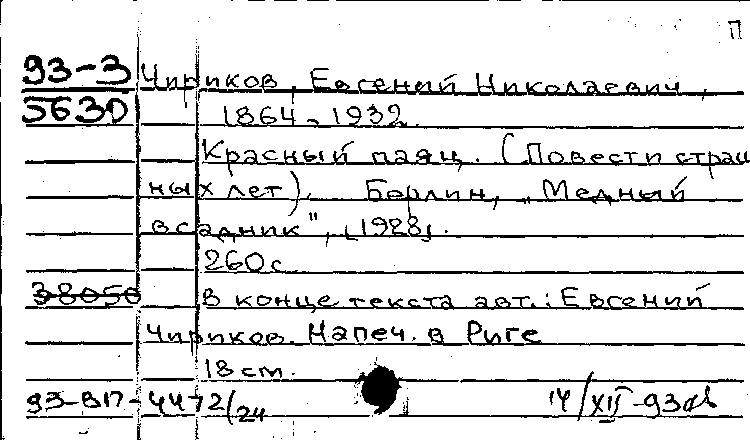 П
93-3 Чириков, Евгений Николаевич,
5630 1864-1932.
Красный паяц. (Повести страш
ных лет). Берлин, „Медный
всадник", [1928].
260с
38050 В конце текста авт.: Евгений
Чириков. Напеч. в Риге
18 см.
93-ВП-4472/24 14/XII-93